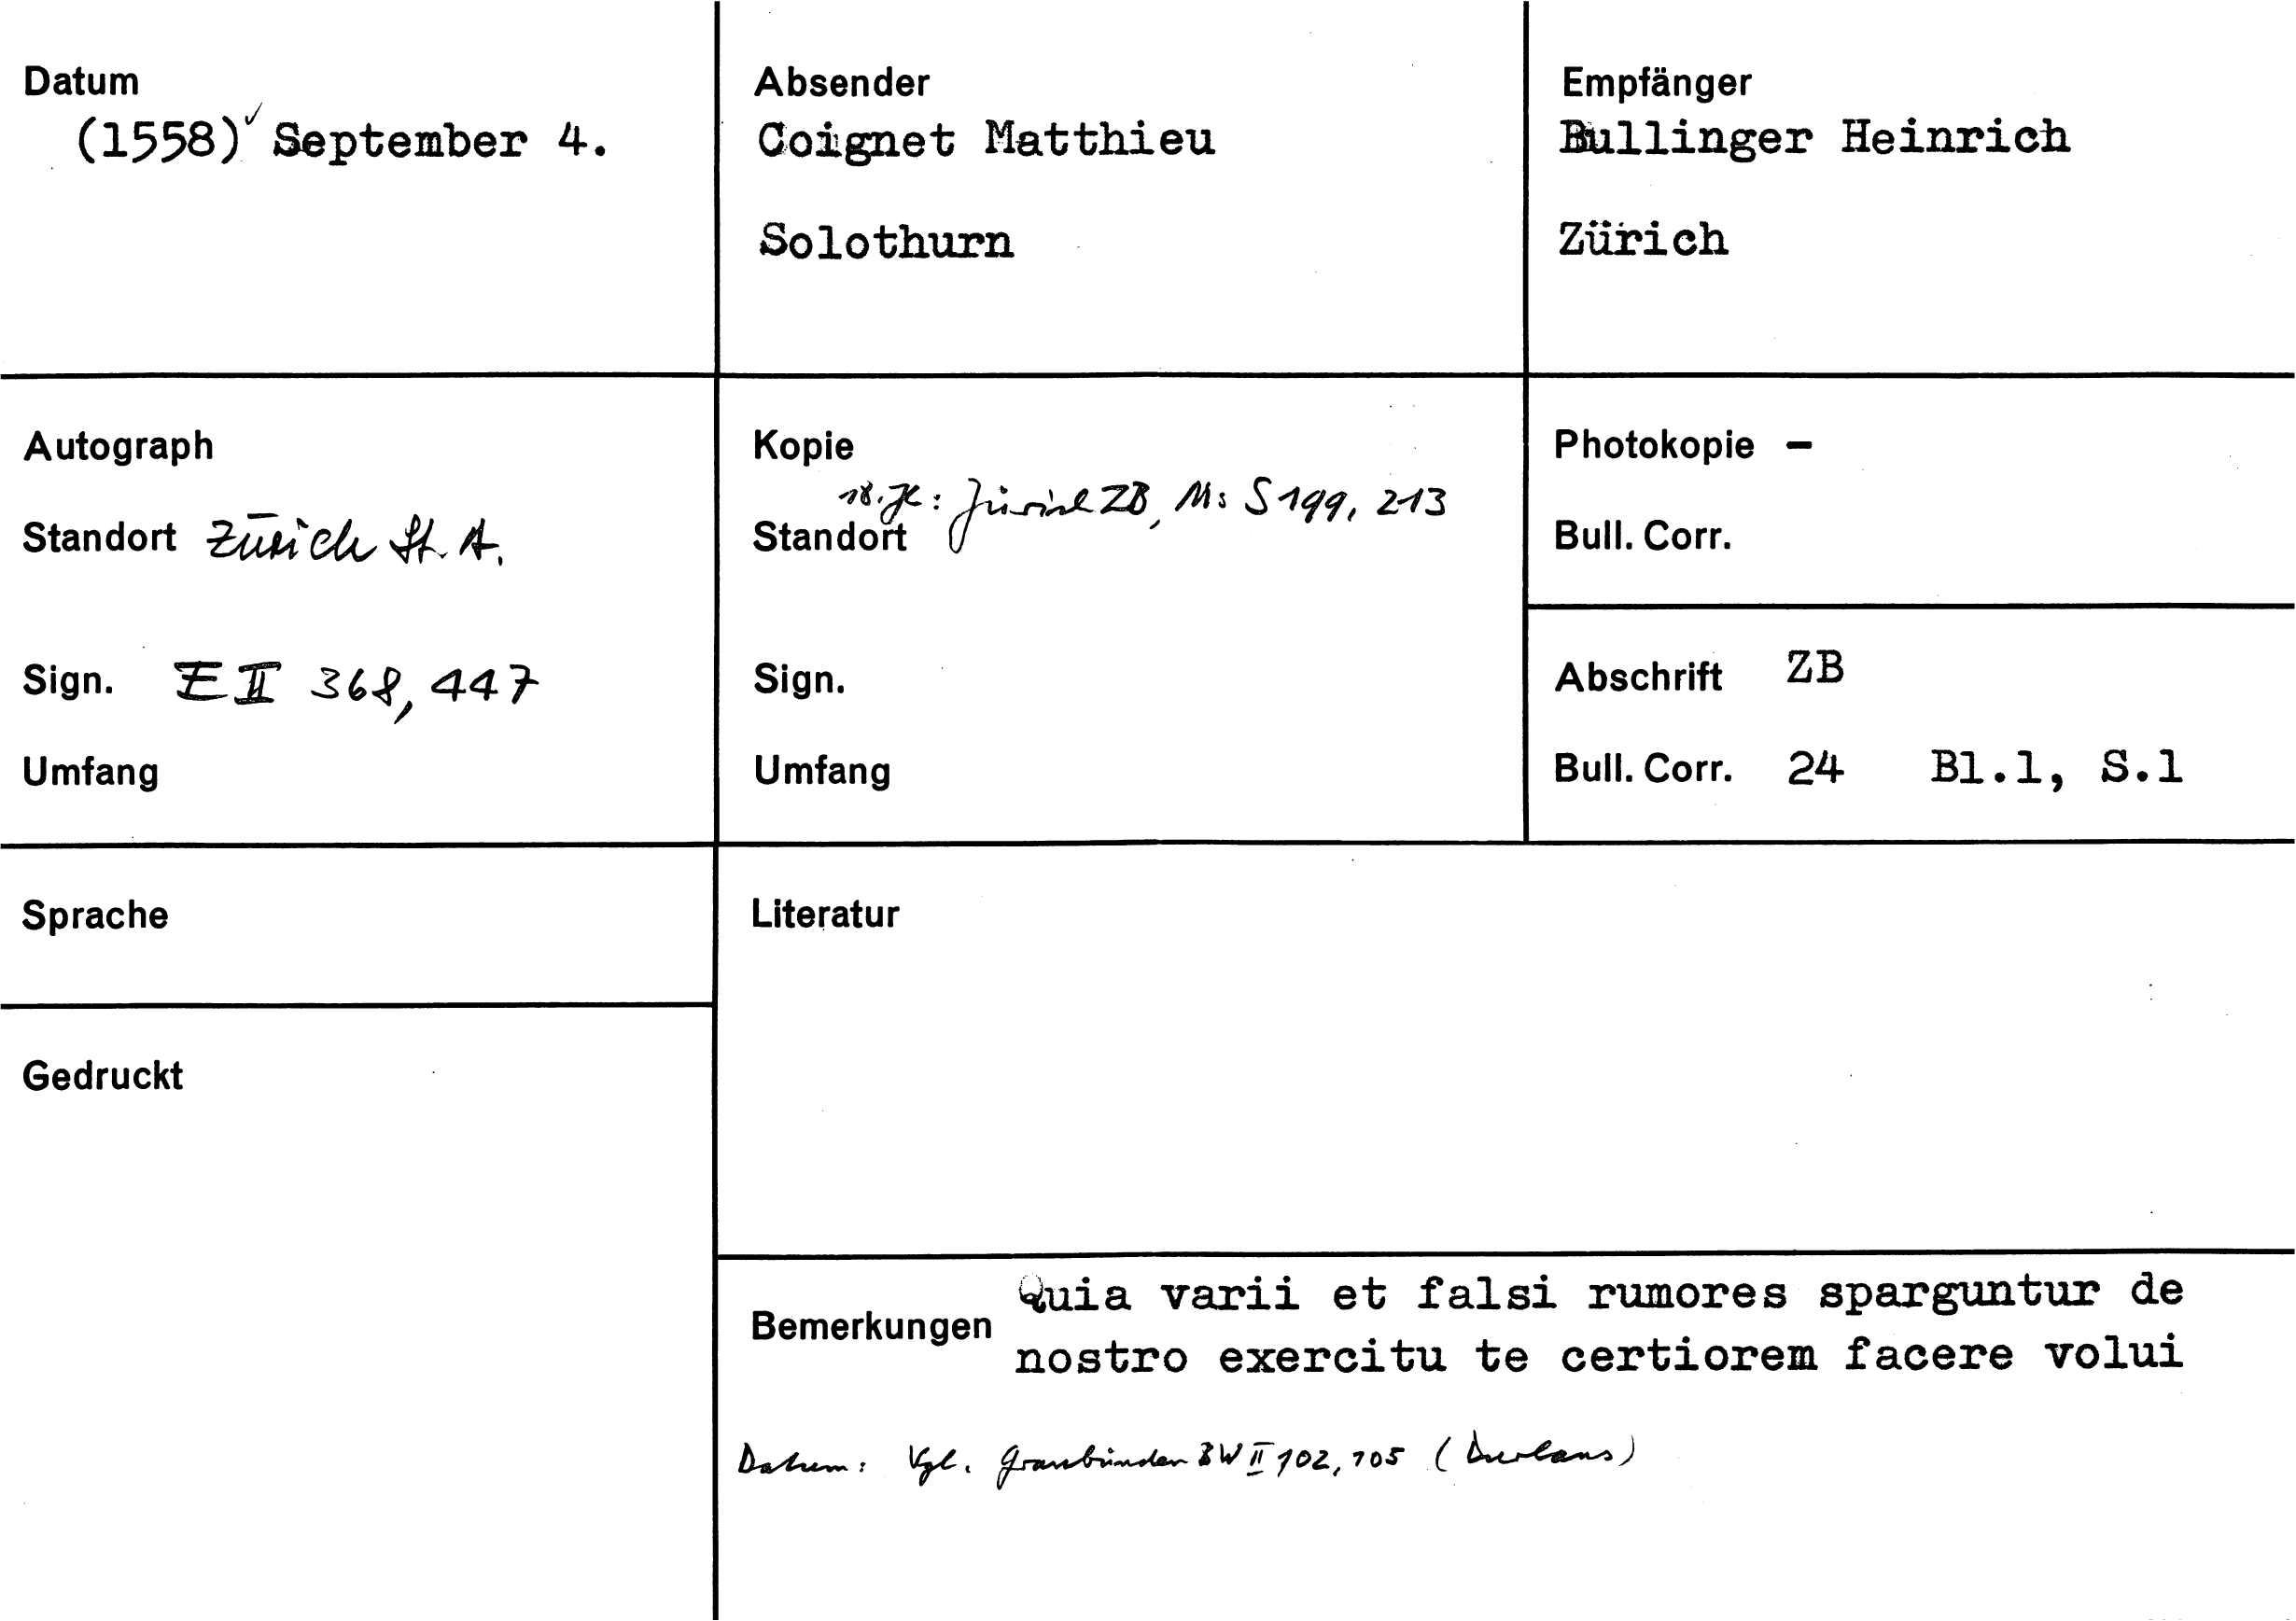 Datum
(1558) September 4.
Absender
Coignet Matthieu
Solothurn
Empfänger
Bullinger Heinrich
Zürich
Autograph
Standort Zürich St. A.
Sign. E II 368, 447
Umfang
Kopie
18. Jh: Zürich ZB, Ms S 199, 213
Standort
Sign.
Umfang
Photokopie –
Bull. Corr.
Abschrift ZB
Bull. Corr. 24 Bl.1, S.1
Sprache
Gedruckt
Literatur
Bemerkungen
Quia varii et falsi rumores sparguntur de
nostro exercitu te certiorem facere volui
Datum: Vgl. Graubünden BW II 102, 105